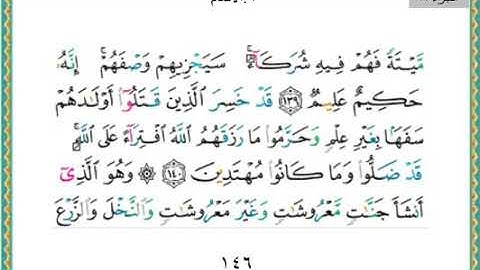 مَّيْتَةً فَهُمْ فِيهِ شُرَكَآءُ ۚ سَيَجْزِيهِمْ وَصْفَهُمْ ۚ إِنَّهُۥ
حَكِيمٌ عَلِيمٌ ﴿١٣٩﴾ قَدْ خَسِرَ ٱلَّذِينَ قَتَلُوٓا۟ أَوْلَـٰدَهُمْ
سَفَهًۢا بِغَيْرِ عِلْمٍ وَحَرَّمُوا۟ مَا رَزَقَهُمُ ٱللَّهُ ٱفْتِرَآءً عَلَى ٱللَّهِ ۚ
قَدْ ضَلُّوا۟ وَمَا كَانُوا۟ مُهْتَدِينَ ﴿١٤٠﴾ ۞ وَهُوَ ٱلَّذِىٓ
أَنشَأَ جَنَّـٰتٍ مَّعْرُوشَـٰتٍ وَغَيْرَ مَعْرُوشَـٰتٍ وَٱلنَّخْلَ وَٱلزَّرْعَ
١٤٦